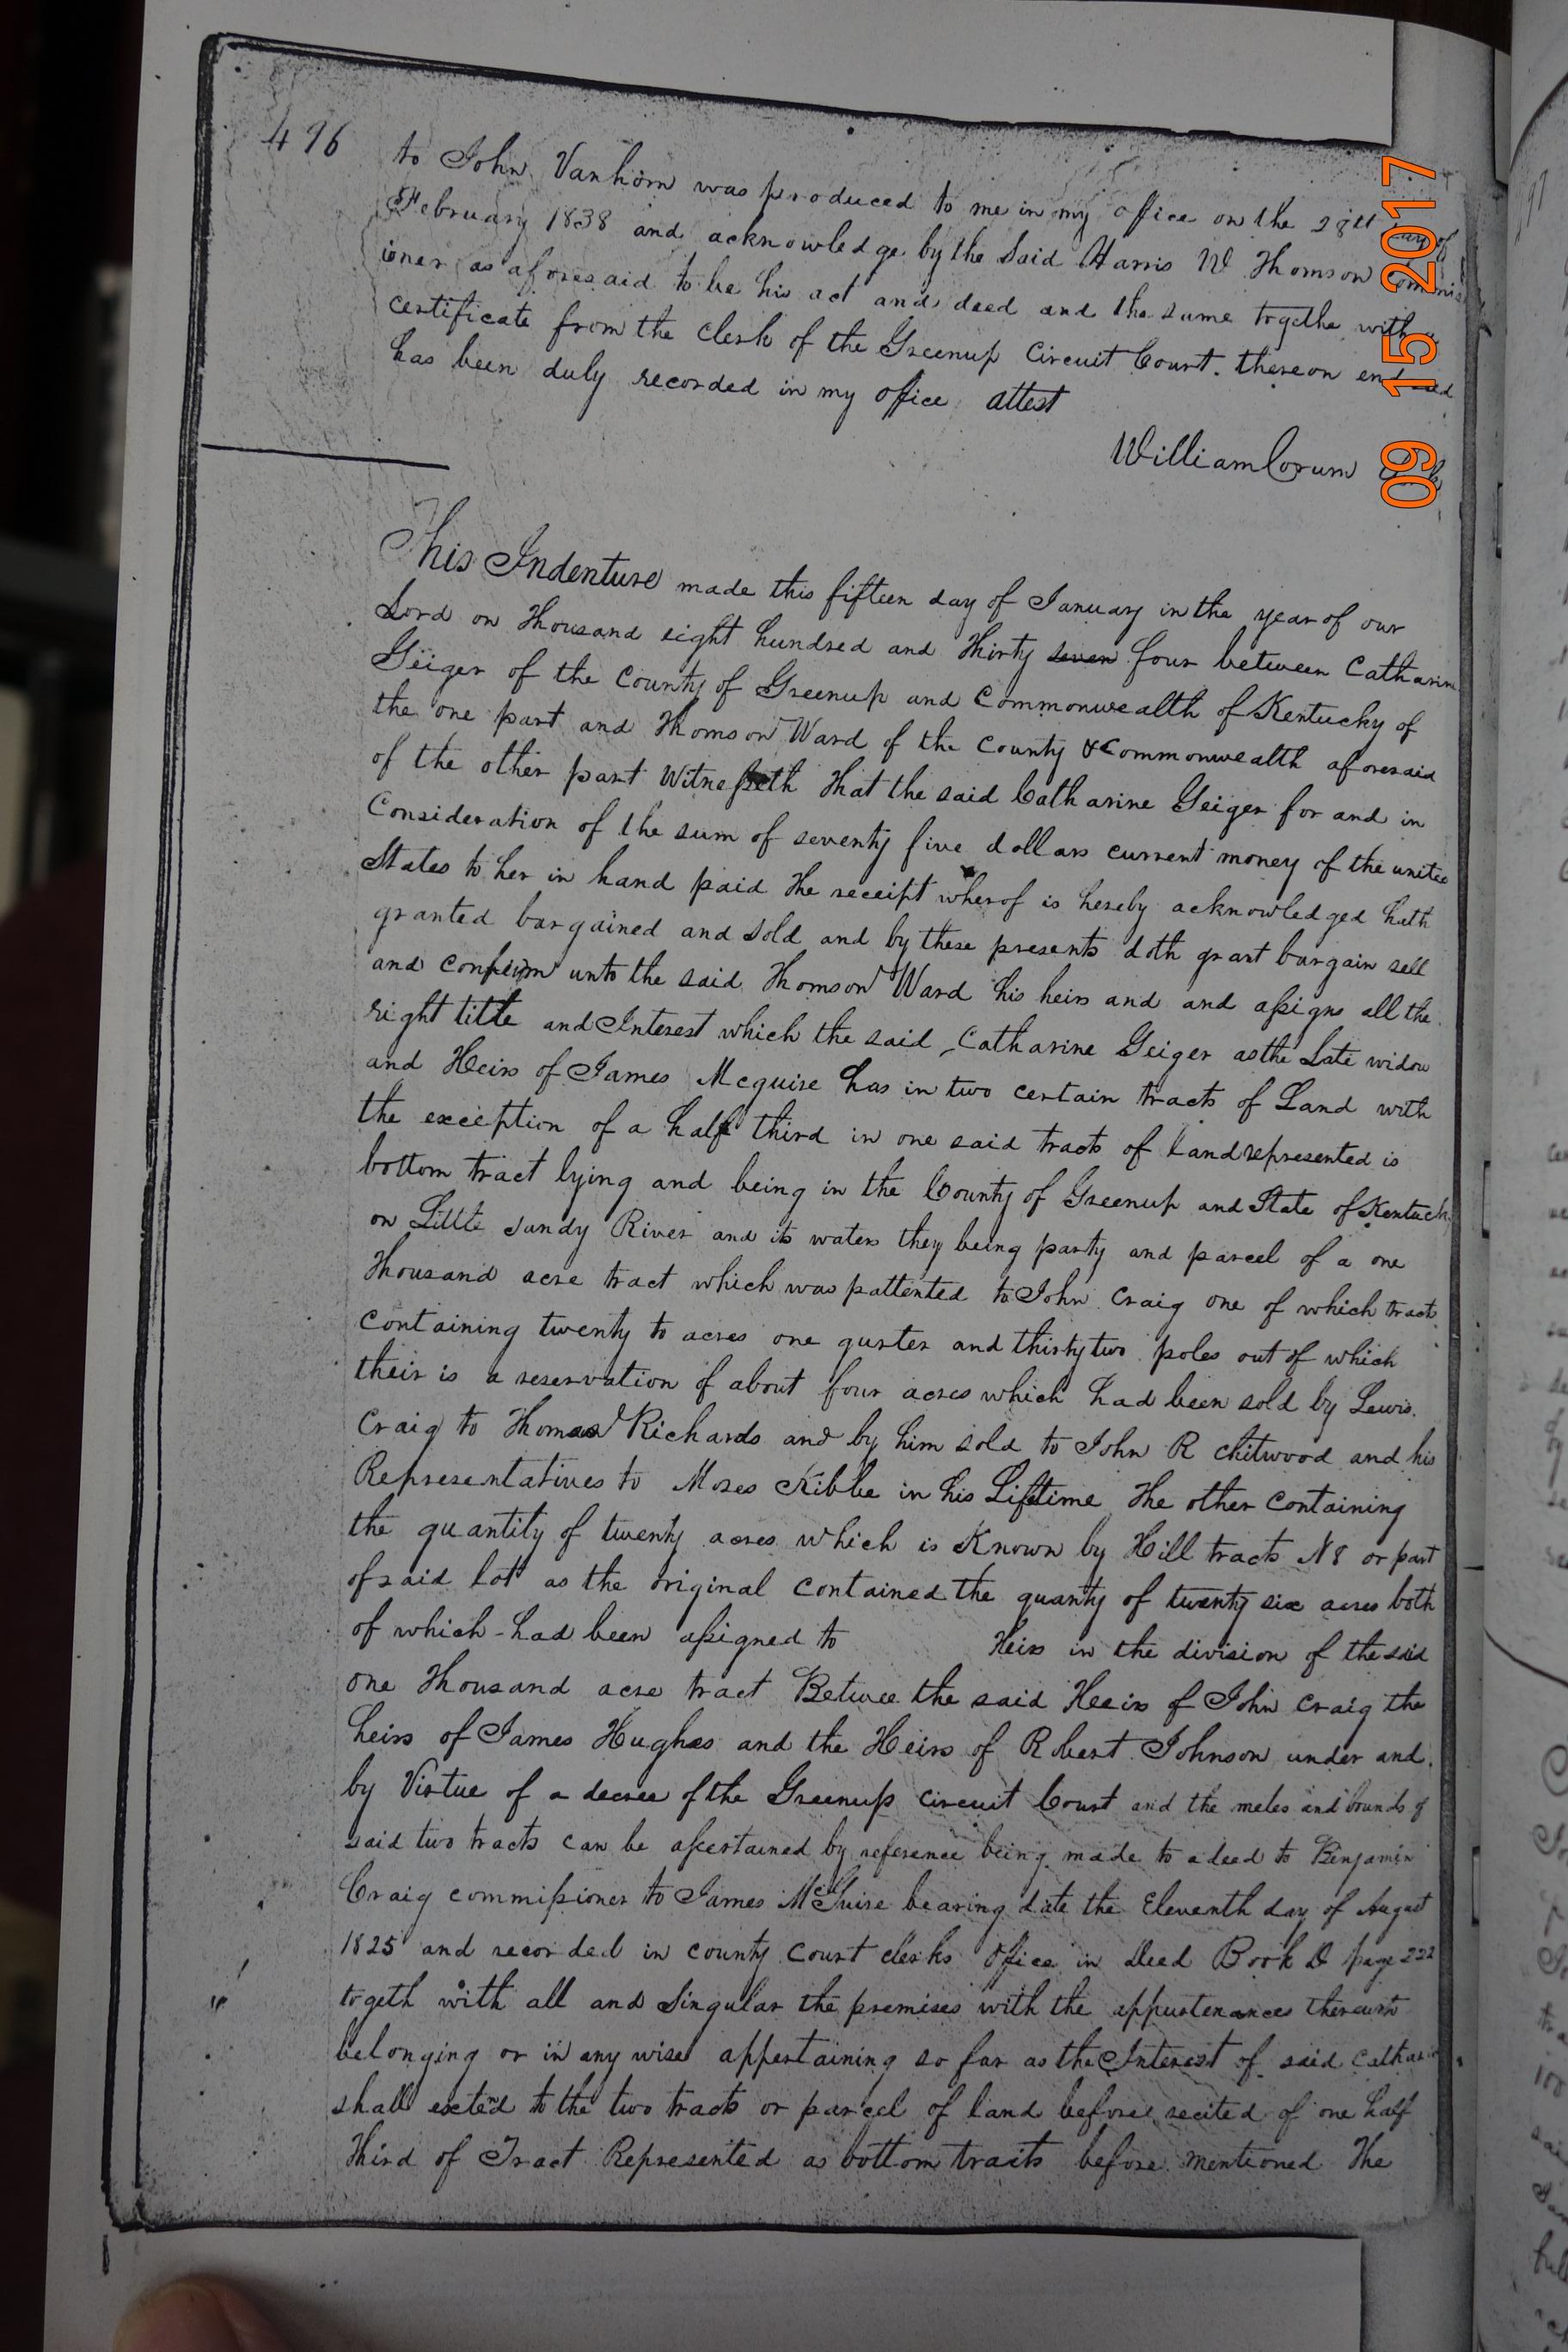 496
to John Vanhorn was produced to me in my office on the 28th day of
February 1838 and acknowledge by the Said Harris W Thomson commis
ioner as aforesaid to be his act and deed and the same togethe with
certificate from the Clerk of the Greenup Circuit Court. thereon endorsed
has been duly recorded in my office attest
William Corum
This Indenture made this fifteen day of January in the year of our
Lord on Thousand eight hundred and Thirty seven four between Catharine
Geiger of the County of Greenup and Commonwealth of Kentucky of
the one part and Thomson Ward of the County & Commonwealth aforesaid
of the other part Witnesseth That the said Catharine Geiger for and in
Consideration of the sum of seventy five dollars current money of the united
States to her in hand paid The receipt wherof is hereby acknowledged hath
granted bargained and sold and by these presents doth grant bargain sell
and confirm unto the said Thomson Ward his heirs and and assigns all the
right title and Interest which the said Catharine Geiger as the Late widow
and Heirs of James Mcguire has in two certain tracts of Land with
the exception of a half third in one said tracts of land represented is
bottom tract lying and being in the County of Greenup and State of Kentuck
on Little Sandy River and its waters they being party and parcel of a one
Thousand acre tract which was pattented to John Craig one of which tract
containing twenty to acres one qurter and thirty two poles out of which
their is a reservation of about four acres which had been sold by Lewis
Craig to Thomas Richards and by him sold to John R Chitwood and his
Representatives to Moses Kibbe in his Lifetime The other containing
the quantity of twenty acres which is Known by Hill tracts N8 or part
of said lot as the original contained the quanty of twenty six acres both
of which had been assigned to Heirs in the division of the said
one Thousand acre tract Betwee the said Heeirs of John Craig the
heirs of James Hughes and the Heirs of Robert Johnson under and
by Virtue of a decree of the Greenup Circuit Court and the metes and bounds of
said two tracts can be assertained by reference being made to a deed to Benjamin
Craig commissioner to James McGuire bearing date the Eleventh day of August
1825 and recorded in county Court clerks Office in Deed Book D page 222
togeth with all and Singular the premises with the appurtenances thereunto
belonging or in any wise appertaining so far as the Interest of said Catharin
shall extend to the two tracts or parcel of land before recited of one half
Third of Tract Represented as bottom tracts before mentioned The
09 15 2017